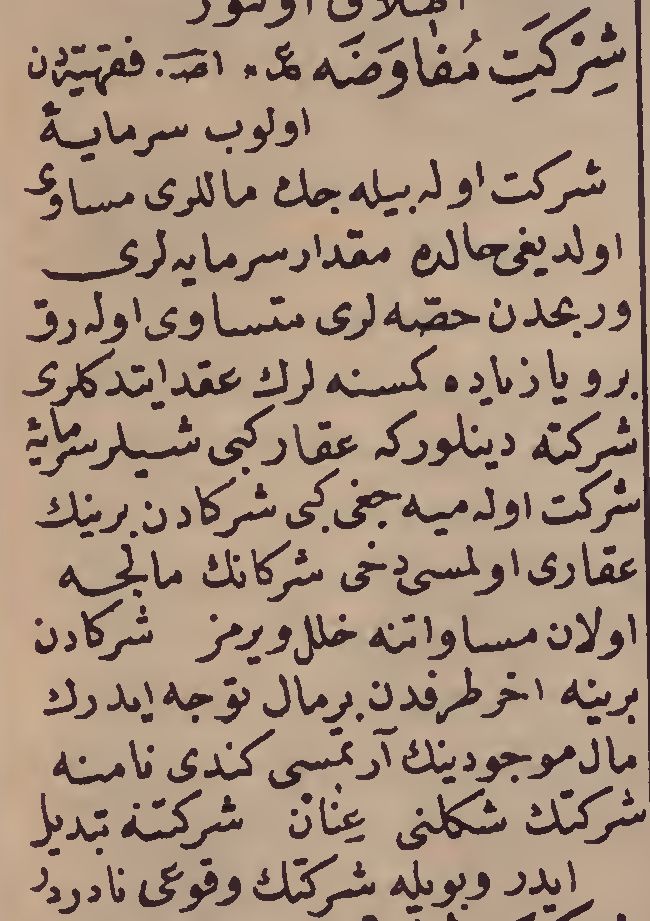 اطلاق اولنور
شِرْكَتِ مُفَاوَضَه عـ. اصـ. فقهيّه‌دن
اولوب سرمايهٔ
شركت اوله بيله جك ماللرى مساوى
اولديغى حالده مقدار سرمايه لرى
وربحدن حصّه لرى متساوى اوله رق
برويا زياده كمسنه لرك عقد ايتدكلرى
شركته دينلوركه عقار كبى شيلر سرمايهٔ
شركت اوله ميه جغى كبى شركادن برينك
عقارى اولمسى دخى شركانك مالجه
اولان مساواتنه خلل ويرمز شركادن
برينه اخر طرفدن بر مال توجه ايدرك
مال موجودينك آرتمسى كندى نامنه
شركتك شكلنى عِنَانْ شركتنه تبديل
ايدر وبويله شركتك وقوعى نادردر